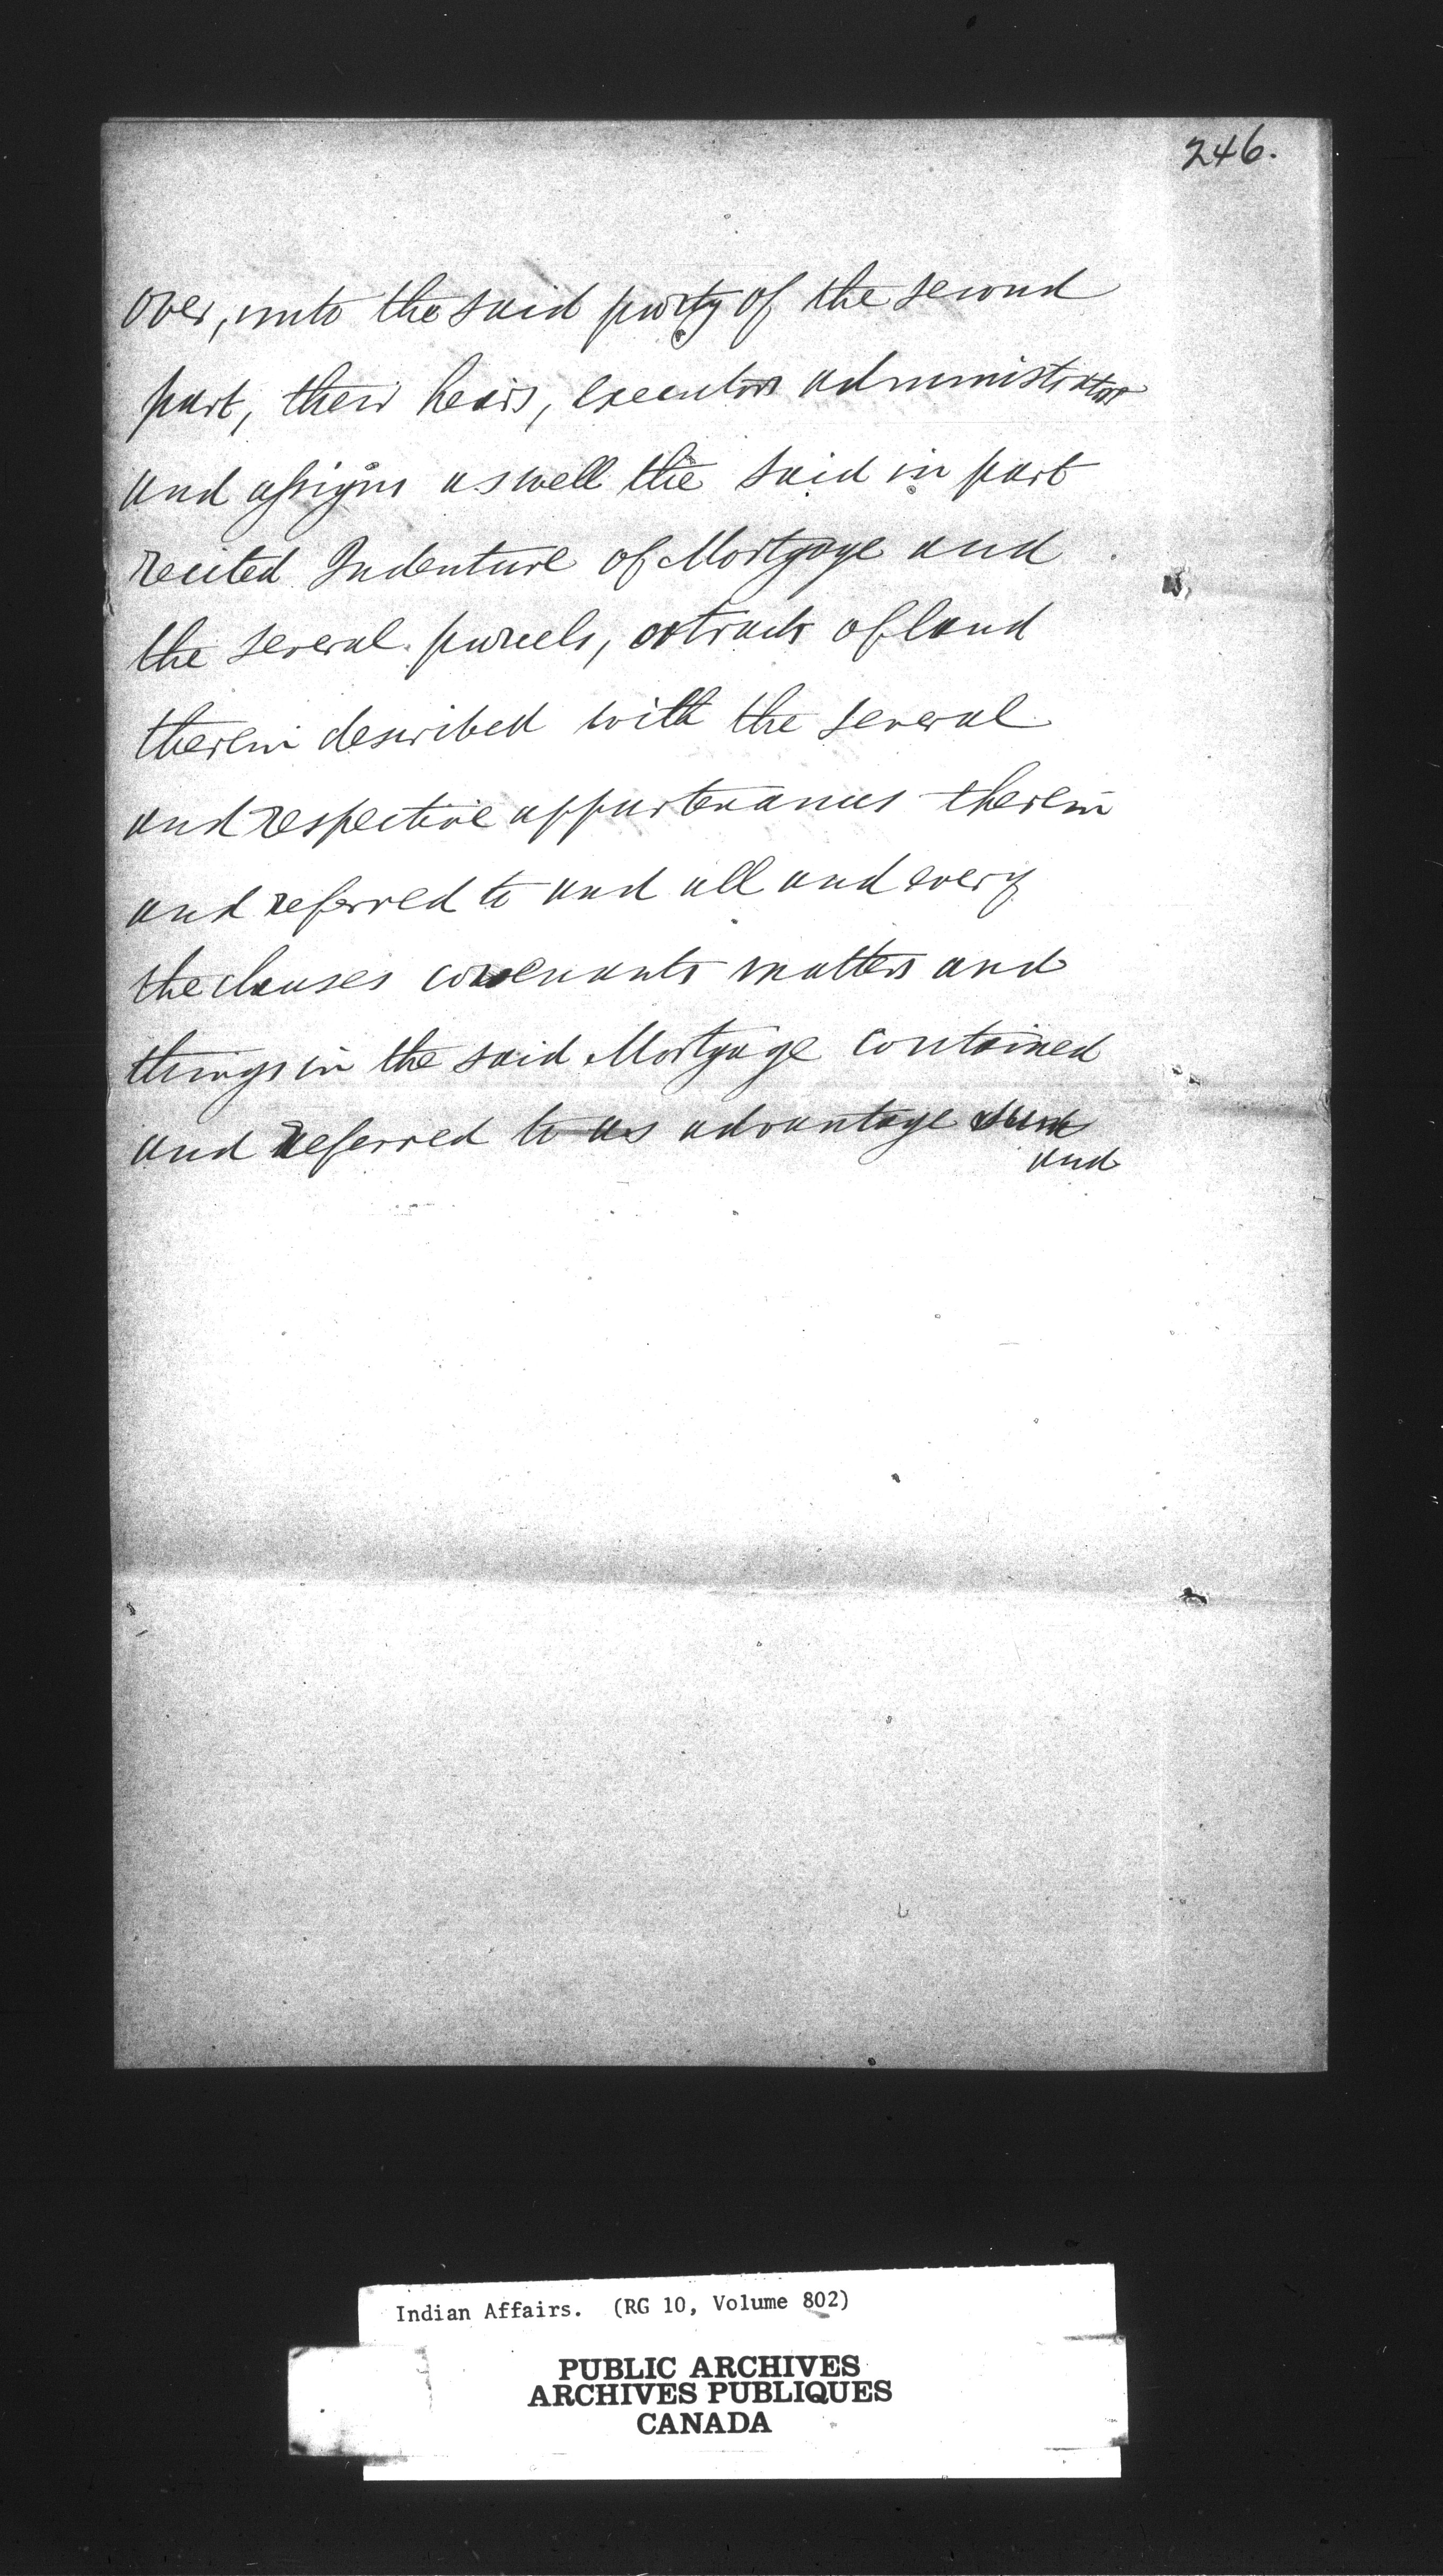 246.
over, unto the said party of the second
part, their heirs, executors administrators
and assigns as well the said in part
recited Indenture of Mortgage and
the several parcels, or tracts of land
therein described with the several
and respective appurtenances therein
and referred to and all and every
the clauses covenants matters and
things in the said Mortgage contained
and referred to as advantage
and
Indian Affairs. (RG 10, Volume 802)
PUBLIC ARCHIVES
ARCHIVES PUBLIQUES
CANADA